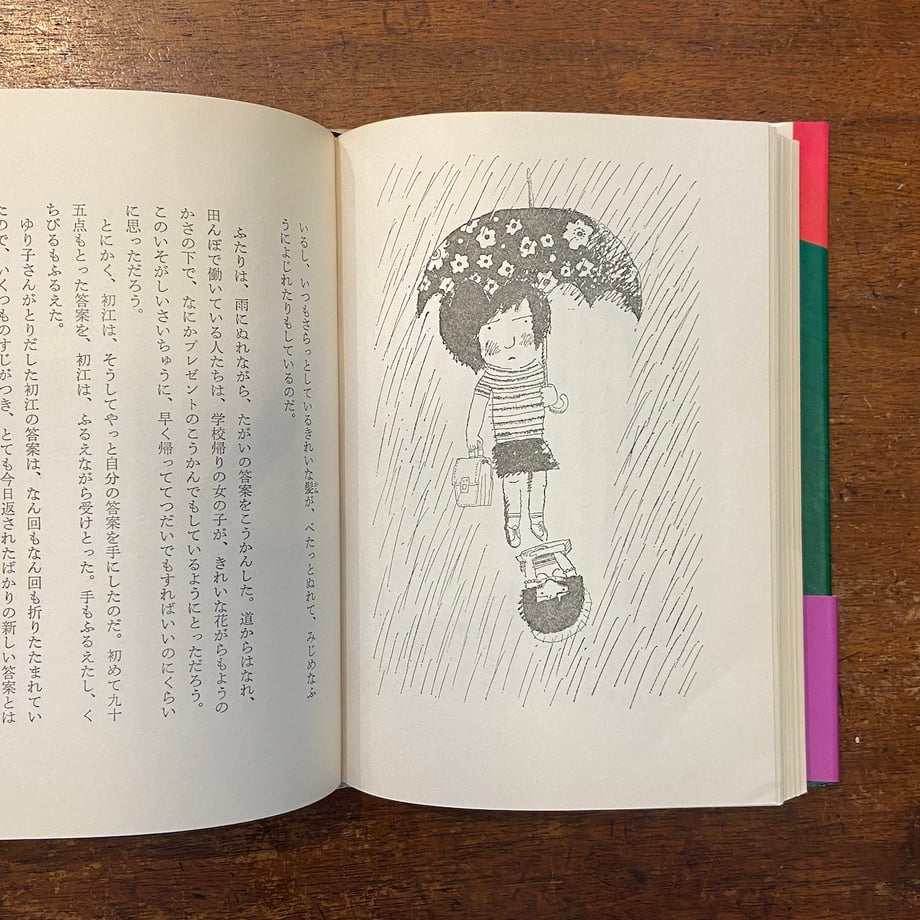 いるし、いつもさらっとしているきれいな髪が、べたっとぬれて、みじめなふ
うによじれたりもしているのだ。
ふたりは、雨にぬれながら、たがいの答案をこうかんした。道からはなれ、
田んぼで働いている人たちは、学校帰りの女の子が、きれいな花がらもようの
かさの下で、なにかプレゼントのこうかんでもしているようにとっただろう。
このいそがしいさいちゅうに、早く帰っててつだいでもすればいいのにくらい
に思っただろう。
とにかく、初江は、そうしてやっと自分の答案を手にしたのだ。初めて九十
五点もとった答案を、初江は、ふるえながら受けとった。手もふるえたし、く
ちびるもふるえた。
ゆり子さんがとりだした初江の答案は、なん回もなん回も折りたたまれてい
たので、いくつものすじがつき、とても今日返されたばかりの新しい答案とは